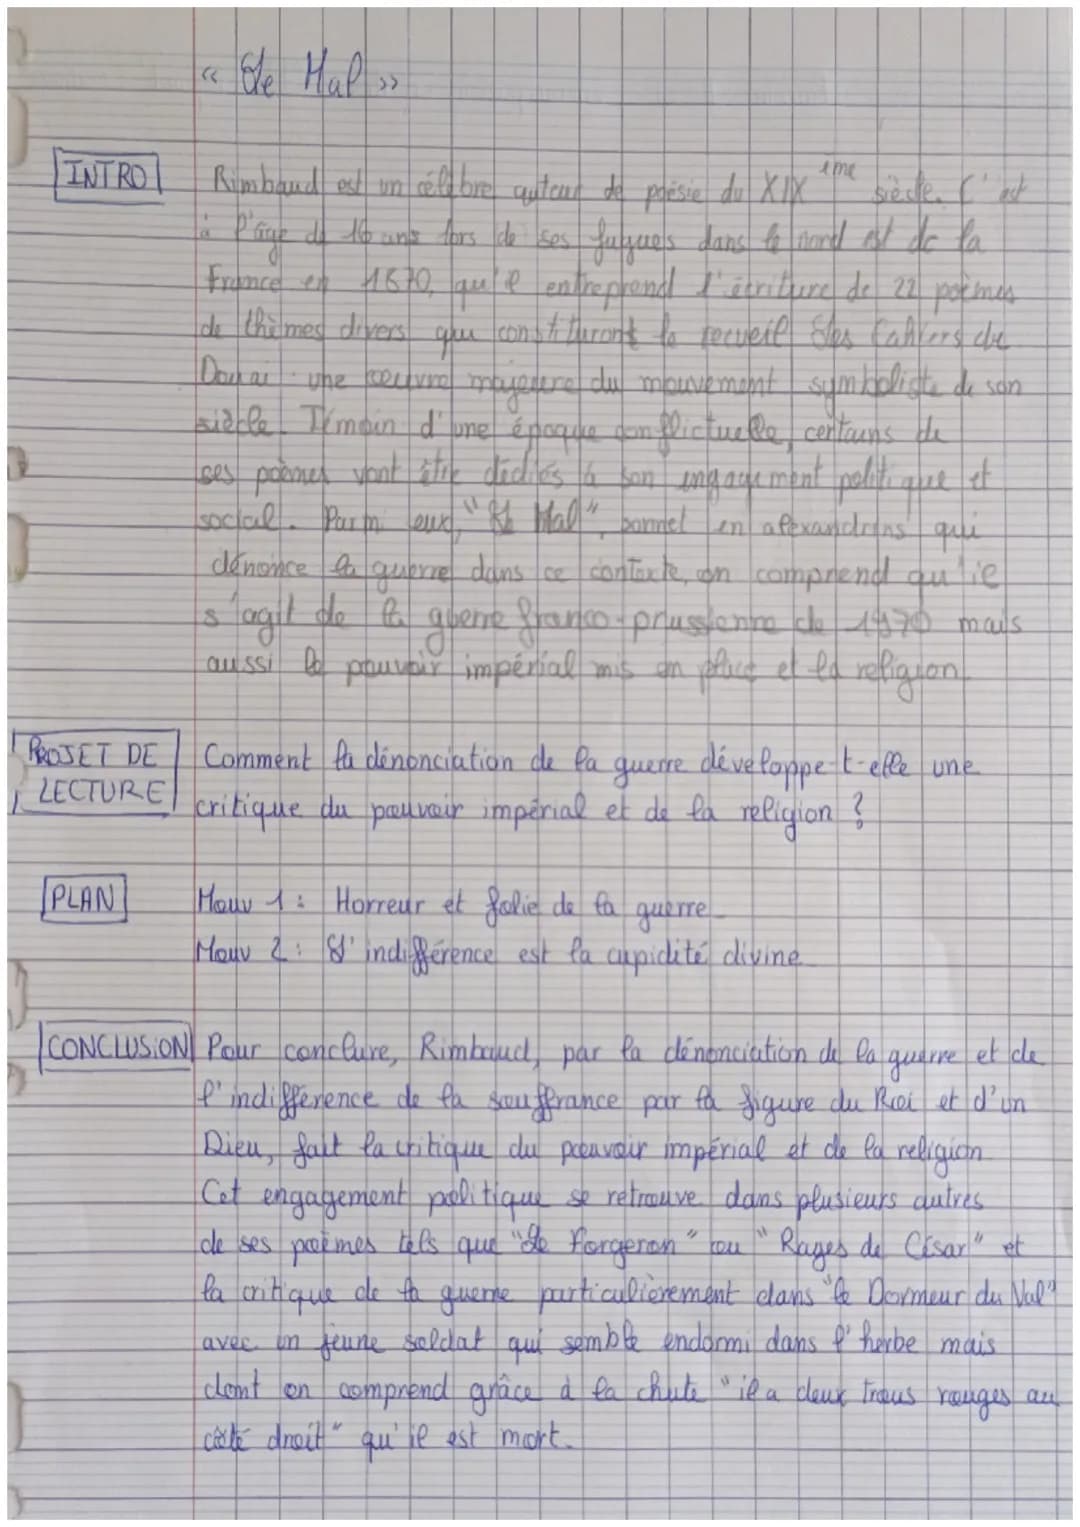 « Le Mal »
INTRO Rimbaud est un célèbre auteur de poésie du XIX ème siècle. C'est
à l'âge de 16 ans lors de ses fugues dans le nord est de la
France en 1870, qu'il entreprend l'écriture de 22 poèmes
de thèmes divers qui constituront le recueil Les Cahiers de
Douai une oeuvre majeure du mouvement symboliste de son
siècle. Témoin d'une époque conflictuelle, certains de
ses poèmes vont être dédiés à son engagement politique et
social. Parmi eux, "Le Mal", sonnet en alexandrins qui
dénonce la guerre dans ce contexte, on comprend qu'il
s'agit de la guerre franco-prussienne de 1870 mais
aussi le pouvoir impérial mis en place et la religion.
PROJET DE Comment la dénonciation de la guerre développe-t-elle une
LECTURE critique du pouvoir impérial et de la religion ?
PLAN Mouv 1 : Horreur et folie de la guerre
Mouv 2 : L'indifférence est la cupidité divine
CONCLUSION Pour conclure, Rimbaud, par la dénonciation de la guerre et de
l'indifférence de la souffrance par la figure du Roi et d'un
Dieu, fait la critique du pouvoir impérial et de la religion
Cet engagement politique se retrouve dans plusieurs autres
de ses poèmes tels que "Le Forgeron" ou "Rages de César" et
la critique de la guerre particulièrement dans "le Dormeur du Val"
avec un jeune soldat qui semble endormi dans l'herbe mais
dont on comprend grâce à la chute "il a deux trous rouges au
côté droit" qu'il est mort.